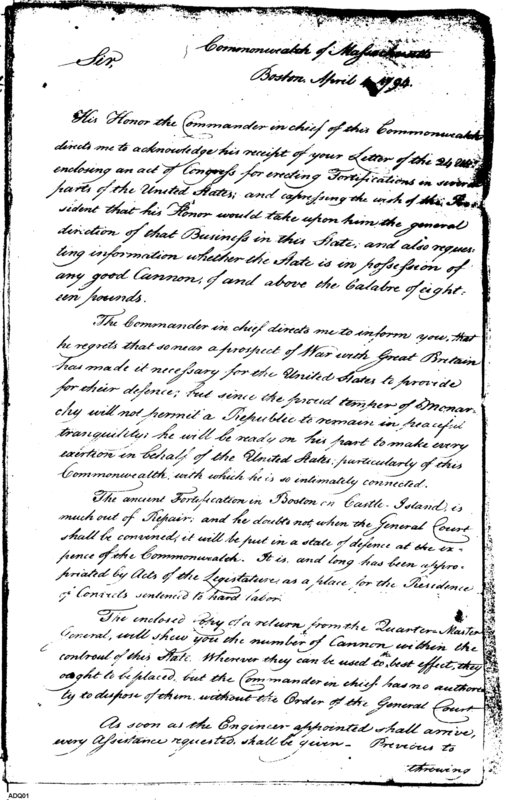 Commonwealth of Massachusetts
Boston, April 1794.
Sir,
His Honor the Commander in chief of this Commonwealth
directs me to acknowledge his receipt of your Letter of the 24 Ult.
enclosing an act of Congress for erecting Fortifications in several
parts of the United States; and expressing the wish of the Pre=
sident that his Honor would take upon him the general
direction of that Business in this State; and also reques=
ting information whether the State is in possession of
any good Cannon, of and above the Calabre of eight=
een pounds.
The Commander in chief directs me to inform you, that
he regrets that so near a prospect of War with Great Britain
has made it necessary for the United States to provide
for their defence; but since the proud temper of Monar=
chy will not permit a Republic to remain in peaceful
tranquility; he will be ready on his part to make every
exertion in behalf of the United States, particularly of this
Commonwealth, with which he is so intimately connected.
The ancient Fortification in Boston on Castle-Island, is
much out of Repair; and he doubts not, when the General Court
shall be convened, it will be put in a state of defence at the ex=
pence of the Commonwealth. It is, and long has been appro=
priated by Acts of the Legislature, as a place for the Residence
of Convicts sentenced to hard labor.
The enclosed Copy of a return from the Quarter Master
General, will shew you the number of Cannon within the
controul of this State. Wherever they can be used to the best effect, they
ought to be placed, but the Commander in chief has no authori
ty to dispose of them, without the Order of the General Court
As soon as the Engineer appointed shall arrive,
every Assistance requested, shall be given— Previous to
throwing
ADQ01